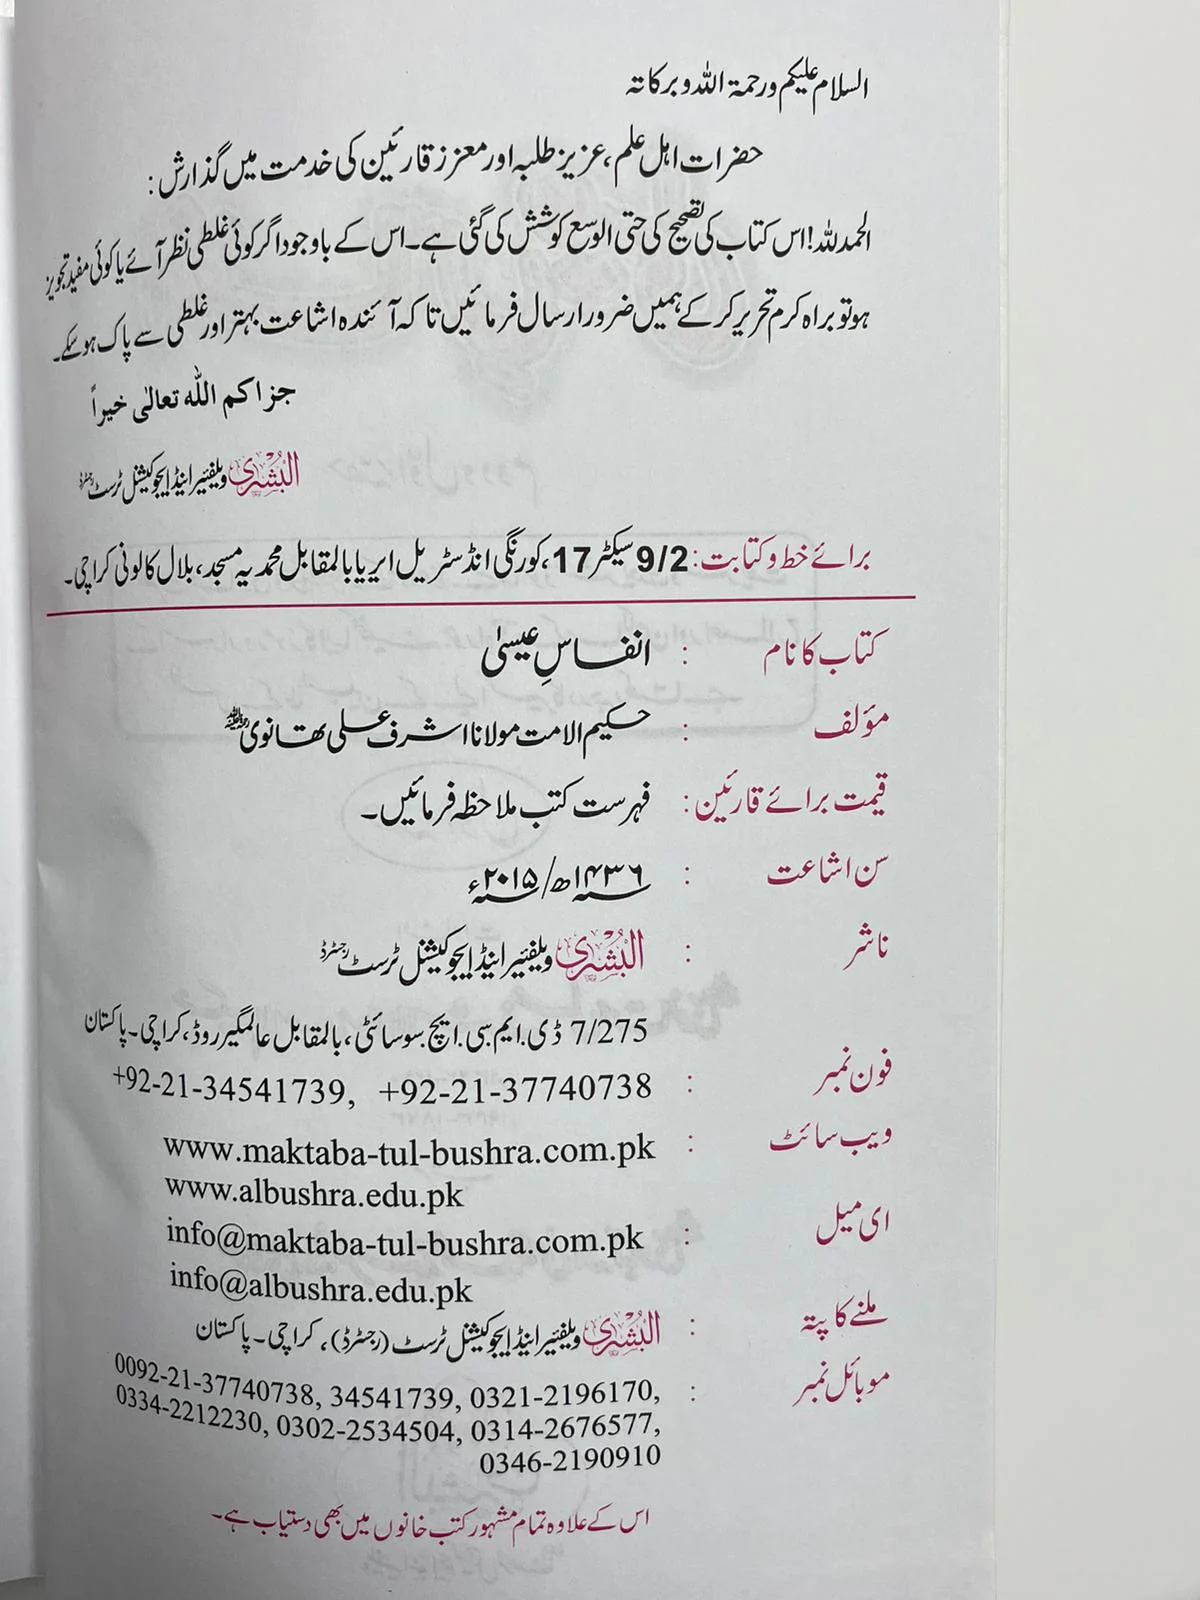 السلام علیکم ورحمۃ اللہ وبرکاتہ
حضرات اہل علم، عزیز طلبہ اور معزز قارئین کی خدمت میں گذارش:
الحمد للہ! اس کتاب کی تصحیح کی حتی الوسع کوشش کی گئی ہے۔ اس کے باوجود اگر کوئی غلطی نظر آئے یا کوئی مفید تجویز
ہو تو براہ کرم تحریر کر کے ہمیں ضرور ارسال فرمائیں تاکہ آئندہ اشاعت بہتر اور غلطی سے پاک ہو سکے۔
جزاكم الله تعالى خيراً
البُشریٰ ویلفیئر اینڈ ایجوکیشنل ٹرسٹ رجسٹرڈ
برائے خط وکتابت: 9/2 سیکٹر 17، کورنگی انڈسٹریل ایریا بالمقابل محمدیہ مسجد، بلال کالونی کراچی۔
کتاب کا نام : انفاسِ عیسیٰ
مؤلف : حکیم الامت مولانا اشرف علی تھانوی رحمہ اللہ
قیمت برائے قارئین : فہرست کتب ملاحظہ فرمائیں۔
سن اشاعت : ۱۴۳۶ھ/ ۲۰۱۵ء
ناشر : البُشریٰ ویلفیئر اینڈ ایجوکیشنل ٹرسٹ رجسٹرڈ
7/275 ڈی.ایم.سی.ایچ.سوسائٹی، بالمقابل عالمگیر روڈ، کراچی۔ پاکستان
فون نمبر : +92-21-34541739, +92-21-37740738
ویب سائٹ : www.maktaba-tul-bushra.com.pk
www.albushra.edu.pk
ای میل : info@maktaba-tul-bushra.com.pk
info@albushra.edu.pk
ملنے کا پتہ : البُشریٰ ویلفیئر اینڈ ایجوکیشنل ٹرسٹ (رجسٹرڈ)، کراچی۔ پاکستان
موبائل نمبر : 0092-21-37740738, 34541739, 0321-2196170,
0334-2212230, 0302-2534504, 0314-2676577,
0346-2190910
اس کے علاوہ تمام مشہور کتب خانوں میں بھی دستیاب ہے۔